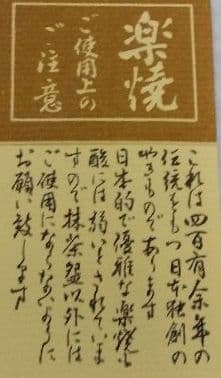 楽焼
ご使用上の
ご注意
これは四百有余年の
伝統をもつ日本独創の
やきものであります
日本的で優雅な楽焼は
酸には弱いとされていま
すので抹茶盌以外には
ご使用にならないように
お願い致します